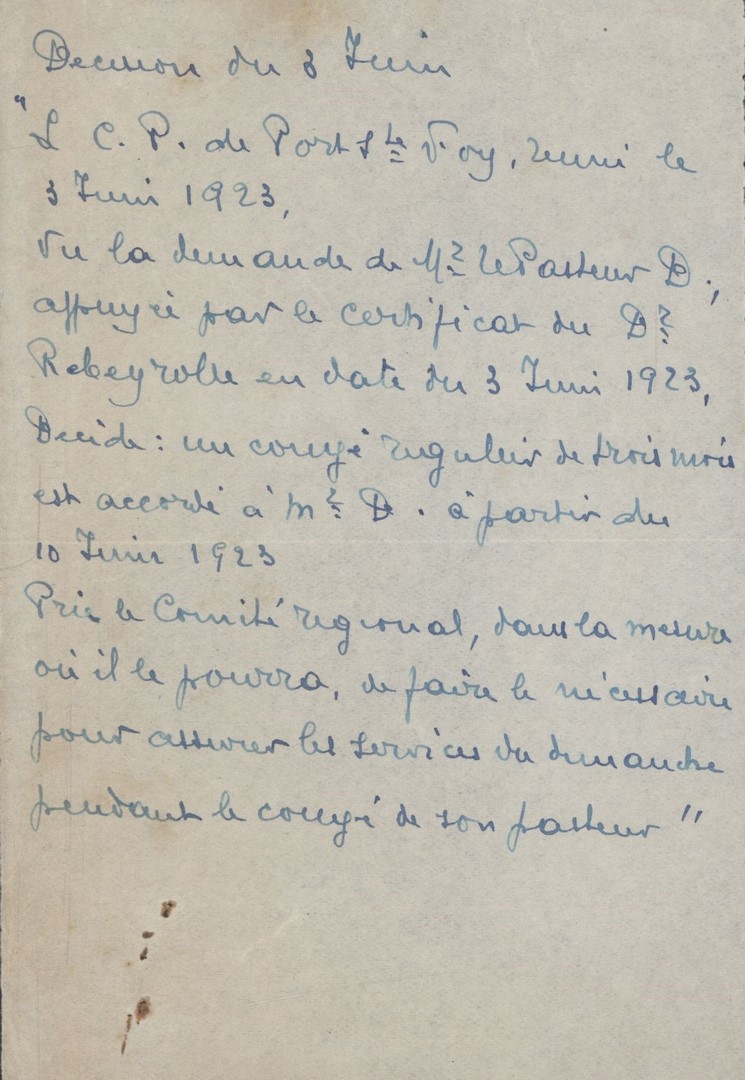 Decision du 3 Juin
"L C. P. de Port Ste Foy, reuni le
3 Juin 1923,
Vu la demande de Mr le Pasteur D.,
appuyée par le certificat du Dr
Rebeyrolle en date du 3 Juin 1923,
Decide : un congé regulier de trois mois
est accordé à Mr D. à partir du
10 Juin 1923
Prie le Comité regional, dans la mesure
où il le pourra, de faire le nécessaire
pour assurer les services du dimanche
pendant le congé de son pasteur"